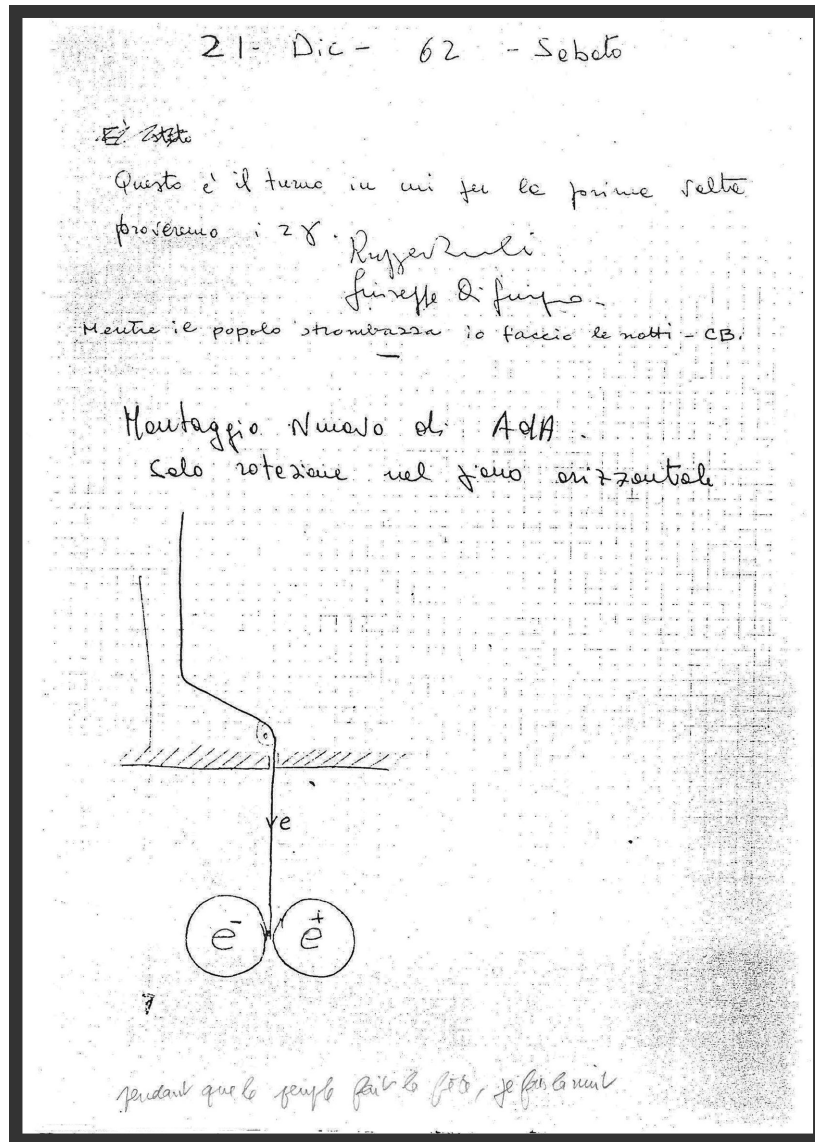 21 - Dic - 62 - Sabato
Questo è il turno in cui per la prima volta
proveremo i 2γ.
Giuseppe Di Giugno
Mentre il popolo strombazza io faccio le notti - CB.
Montaggio Nuovo di AdA.
Solo rotazione nel piano orizzontale
e
e⁻ e⁺
pendant que le peuple fait la fête, je fais la nuit